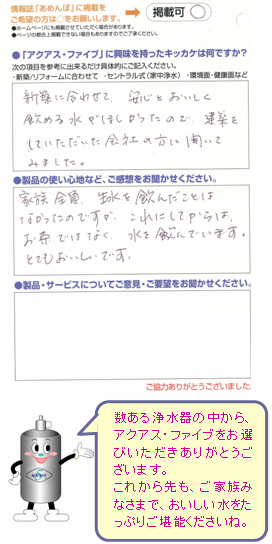 情報誌「あめんぼ」に掲載を
ご希望の方は〇をお願いします。
掲載可 〇
●ホームページにも掲載させていただく場合があります。
●ページの都合上掲載できない場合もありますのでご了承ください。
●「アクアス・ファイブ」に興味を持ったキッカケは何ですか?
次の項目を参考に出来るだけ具体的にご記入ください。
・新築/リフォームに合わせて ・セントラル式(家中浄水) ・環境面・健康面など
新築に合わせて、安心とおいしく
飲める水がほしかったので、建築を
していただいた会社の方に聞いて
みました。
●製品の使い心地など、ご感想をお聞かせください。
家族全員、生水を飲んだことは
なかったのですが、これにしてからは、
お茶ではなく、水を飲んでいます。
とてもおいしいです。
●製品・サービスについてご意見・ご要望をお聞かせください。
ご協力ありがとうございました。
数ある浄水器の中から、
アクアス・ファイブをお選
びいただきありがとうご
ざいます。
これから先も、ご家族み
なさまで、おいしい水をた
っぷりご堪能くださいね。